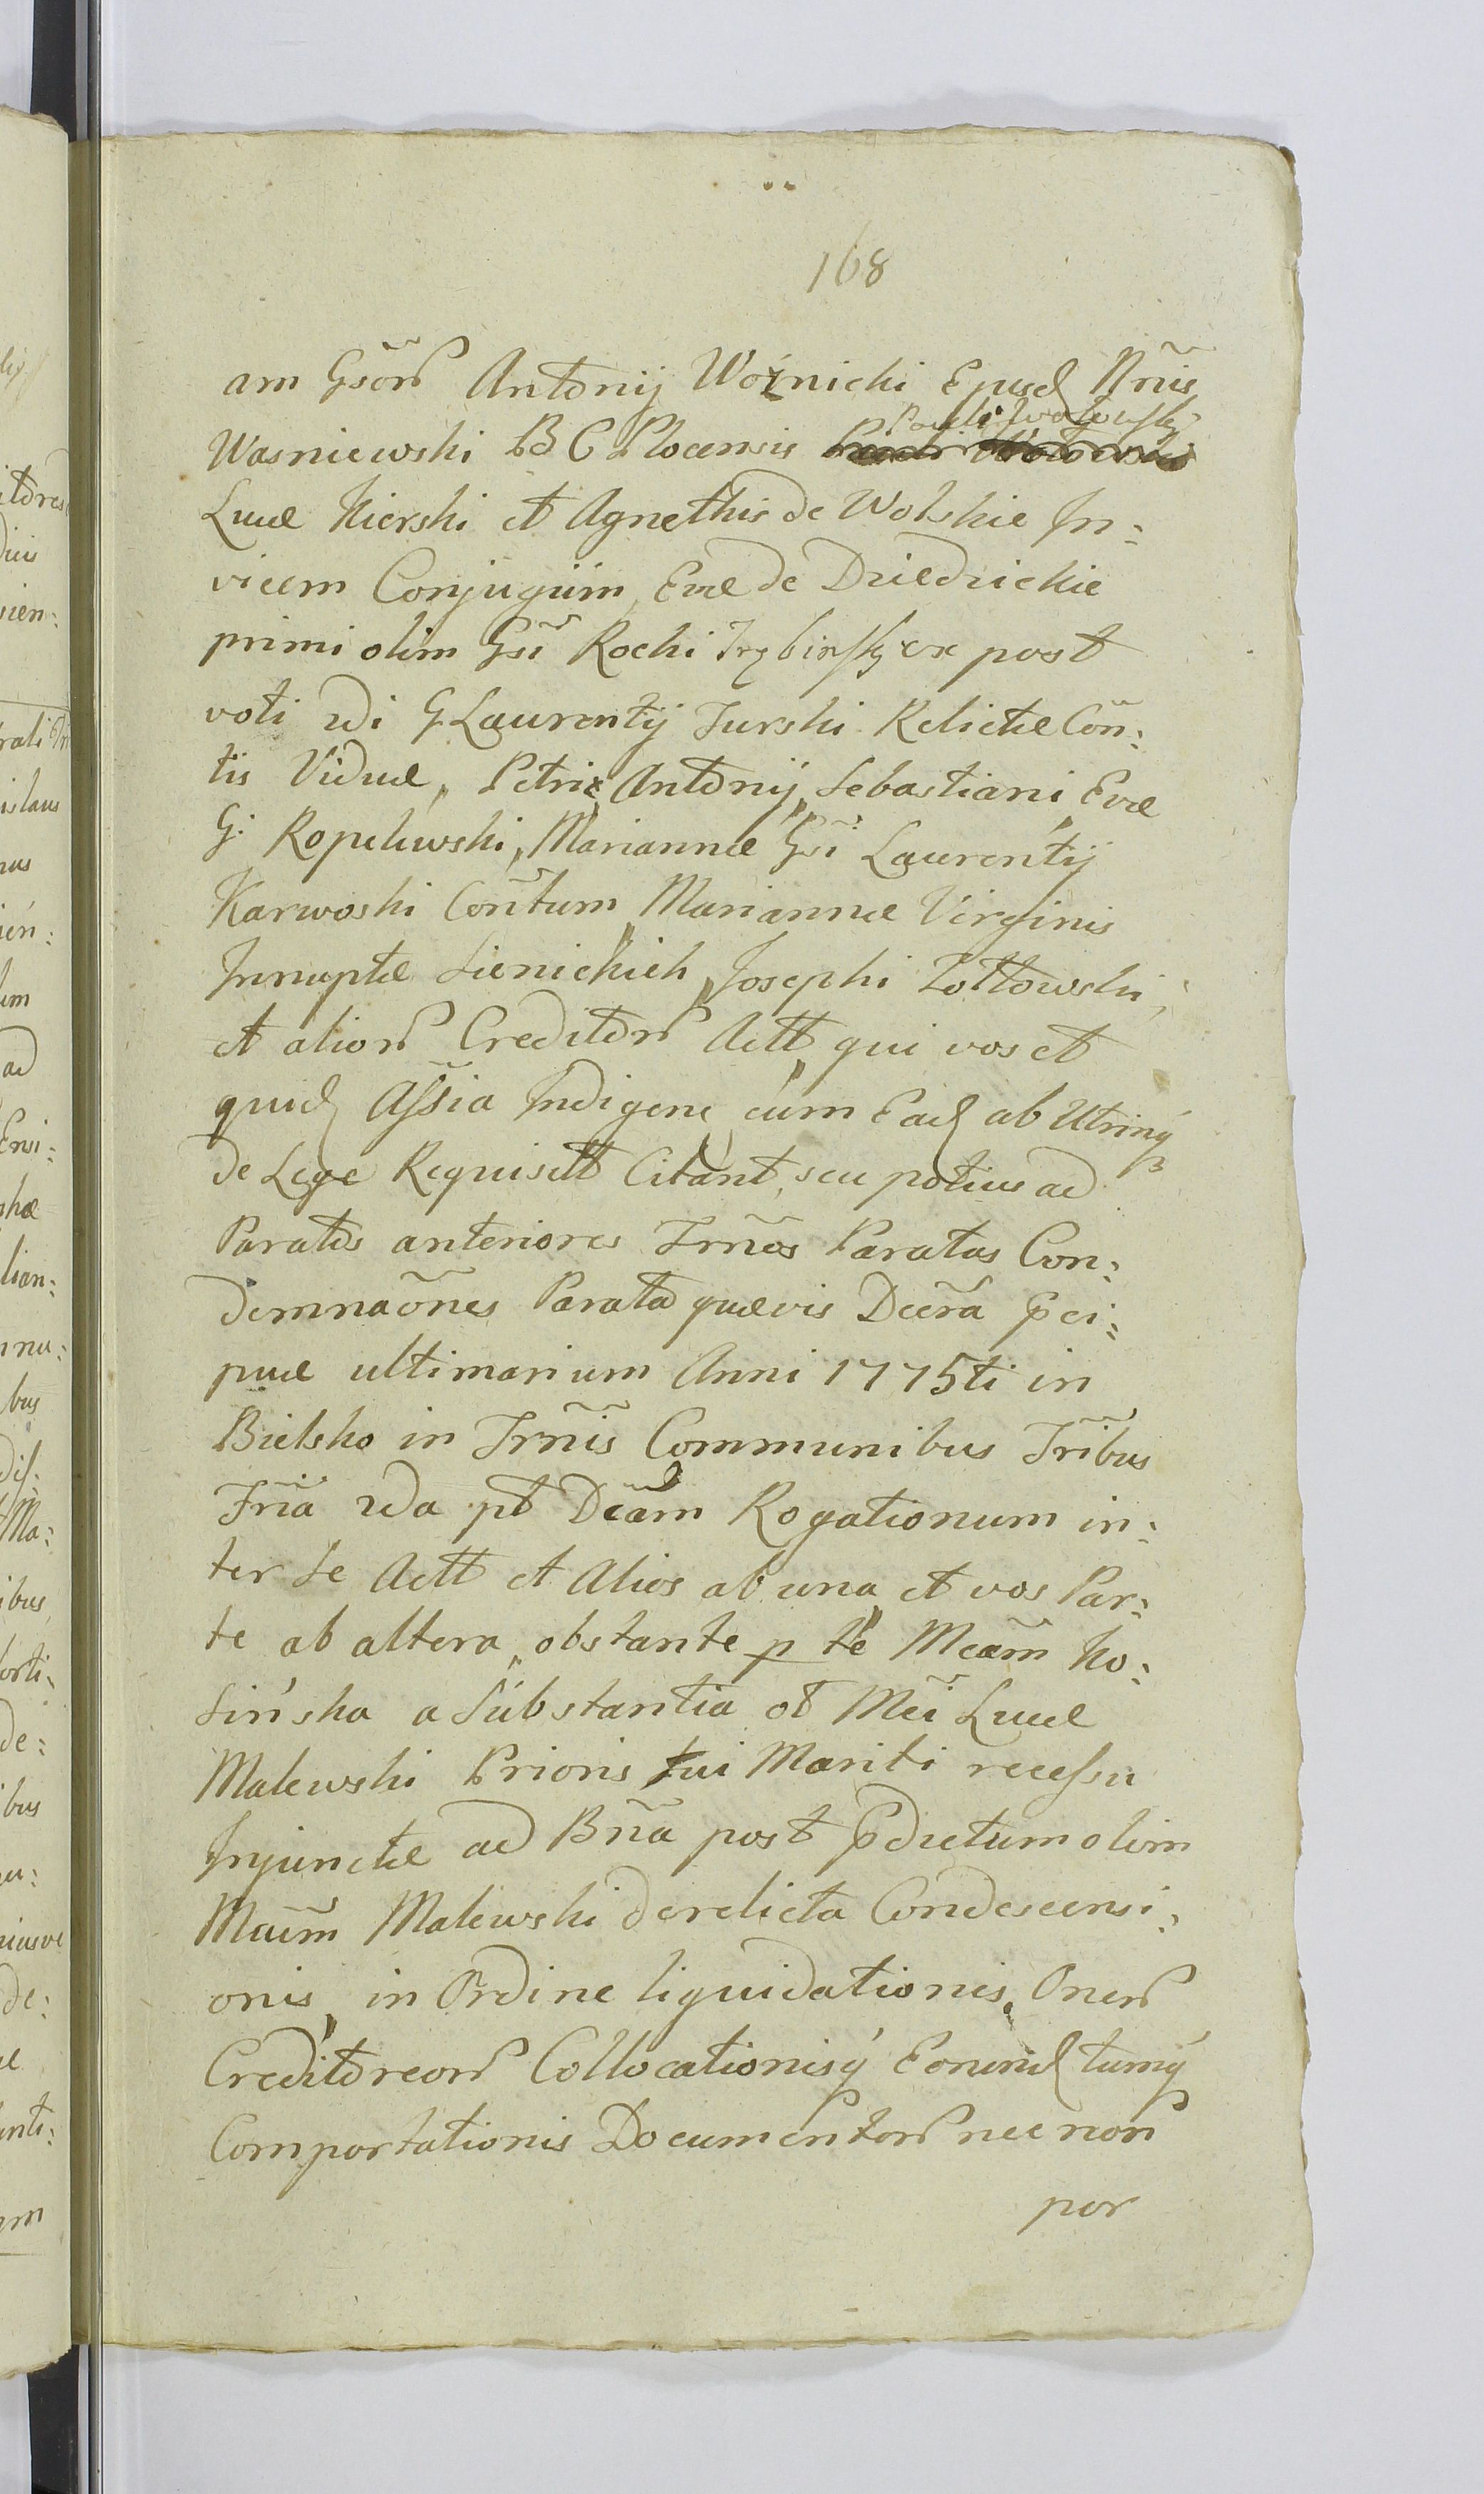 168
am Gsõr Antonij Woźnicki Ejusd Nñis
Pauli Wolowsky
Wasniewski B C Plocensis
Lucæ Kierski et Agnethis de Wolskie In:
vicem Conjugum, Evæ de Dziedzickie
primi olim Gsĩ Rochi Trzbinsky ex post
voti 2di G Laurentij Turski Relictæ Coñ:
tis Viduæ, Petri Antonij, Sebastiani Evæ
G: Ropelewski, Mariannæ Gsĩ Laurentij
Karwoski Coñtum, Mariannæ Virginis
Innuptæ Sienickich, Josephi Zoltowski,
et alior Creditor Actt, qui vos et
quid Assia Indigene cum Ead ab Utrinq
de Lege Requisitt Citant, seu potius ad
Paratos anteriores Trños Paratas Con:
demnaões Parata quævis Decra p̃ci:
puæ ultimarium Anni 1775ti in
Bielsko in Trñis Communibus Trĩbus
Frĩa 2da pt Dcãm Rogationum in:
ter se Actt et Alios ab una et vos Par:
te ab altera, obstante p te Mcãm Ko:
sińska a Substantia ol Mĩi Lucæ
Malewski Prioris tui Mariti recessu
Injunctæ ad Bña post p̃dictum olim
Mcũm Malewski derelicta Condescensi:
onis, in Ordine liquidationis, Oner
Creditoreor Collocationisq Eorund tumq
Comportationis Documentor nec non
per